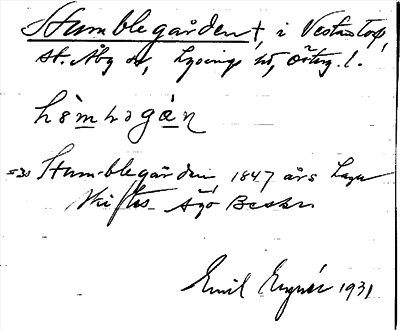 Humblegården †, i Vestantorp,
St. Åby sn, Lysings hd, Östg. l.
hòmbəgá̱n
= Humblegården 1847 års Laga
skiftes- Ägobeskr
Emil 1931